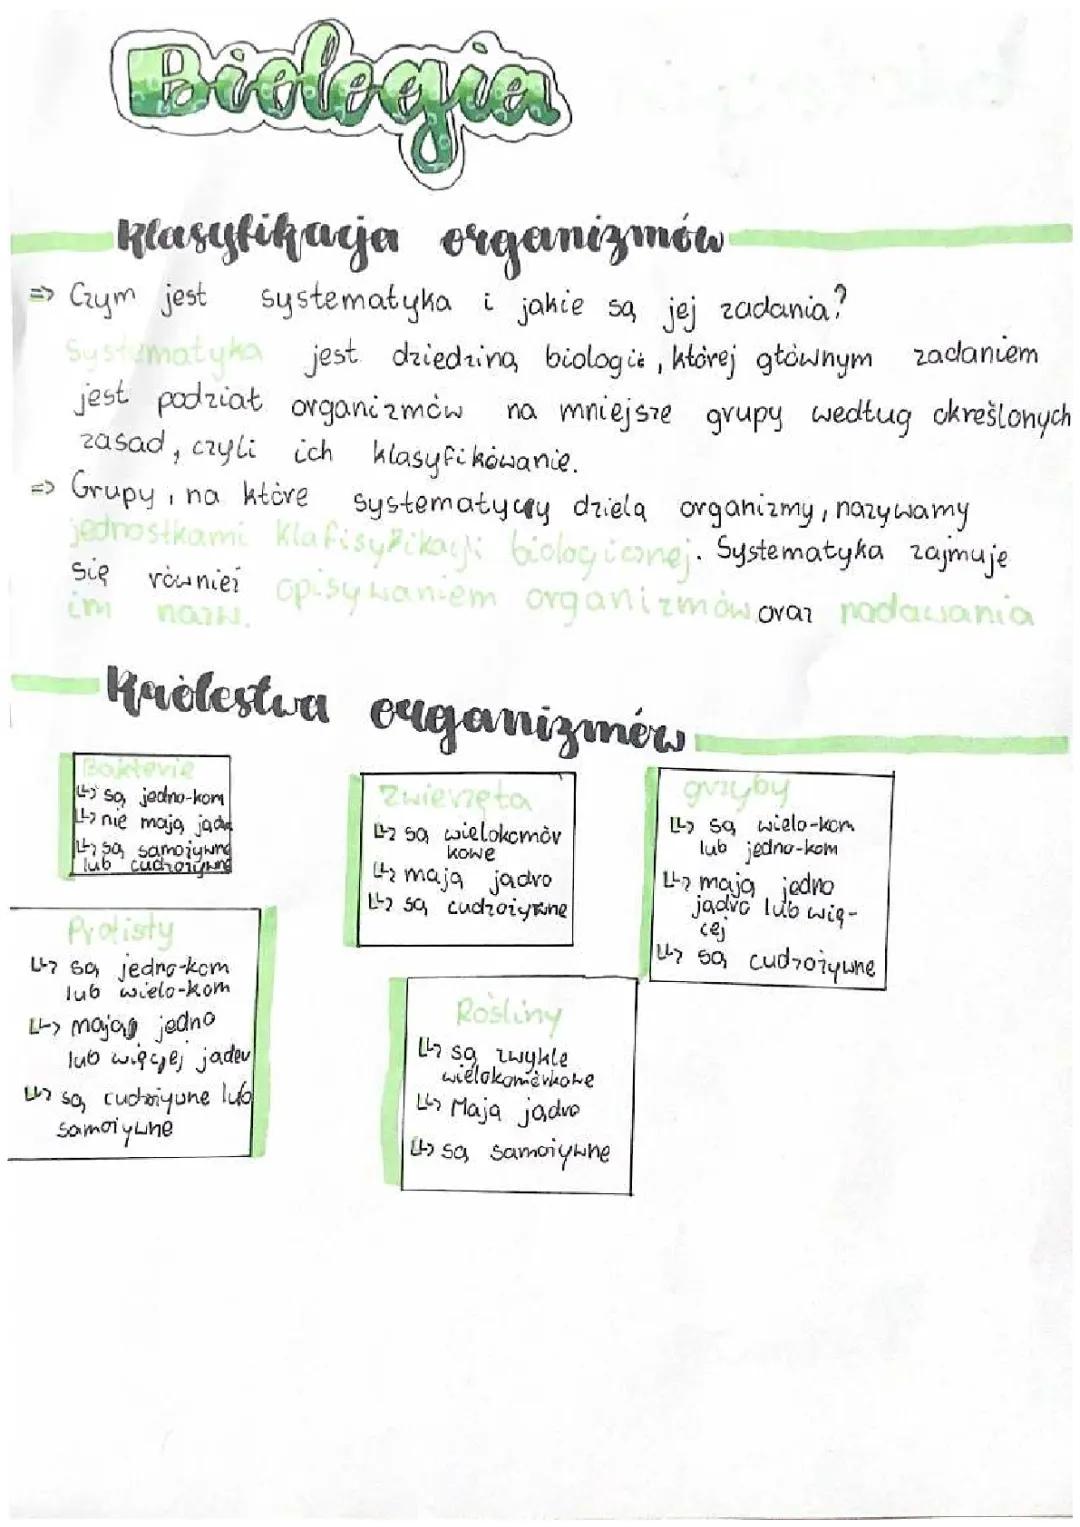 Biologia
Klasyfikacja organizmów
=> Czym jest systematyka i jakie są jej zadania?
Systematyka jest dziedziną biologii, której głównym zadaniem
jest podział organizmów na mniejsze grupy według określonych
zasad, czyli ich klasyfikowanie.
=> Grupy, na które systematycy dzielą organizmy, nazywamy
jednostkami klafisyfikacji biologicznej. Systematyka zajmuje
się również opisywaniem organizmów oraz nadawania
im nazw.
Królestwa organizmów
Bakterie
są jedno-kom
nie mają jądra
są samożywne
lub cudzożywne
Zwierzęta
są wielokomór
kowe
mają jadro
są cudzożywne
grzyby
są wielo-kom
lub jedno-kom
mają jedno
jadro lub wię-
cej
są cudzożywne
Protisty
są jedno-kom
lub wielo-kom
mają jedno
lub więcjej jader
są cudzożywne lub
samożywne
Rośliny
są zwykle
wielokomórkowe
Mają jądro
są samożywne